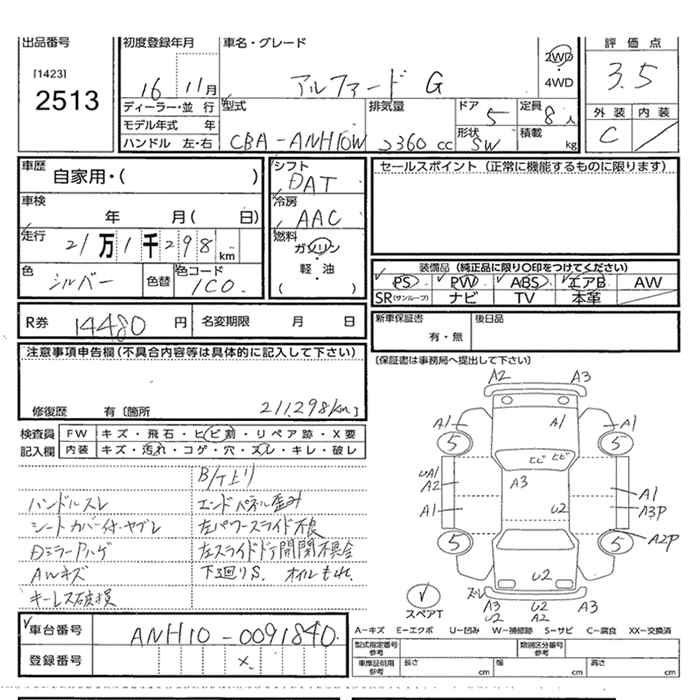 出品番号
[1423]
2513
初度登録年月
16 11月
車名・グレード
アルファード G
2WD
4WD
評価点
3.5
外装 内装
C
ディーラー・並行
モデル年式 年
ハンドル 左・右
型式
CBA-ANH10W
排気量
2360 cc
ドア
5
形状
SW
定員
8人
積載
kg
車歴
自家用・( )
車検
年 月( 日)
走行
21万1千298 km
色
シルバー
色替
色コード
1C0
シフト
DAT
冷房
AAC
燃料
ガソリン
軽・油
( )
セールスポイント (正常に機能するものに限ります)
装備品 (純正品に限り○印をつけてください)
PS PW ABS エアB AW
SR(サンルーフ) ナビ TV 本革
R券 14480 円 名変期限 月 日
新車保証書
有・無
後日品
(保証書は事務局へ提出して下さい)
注意事項申告欄(不具合内容等は具体的に記入して下さい)
211,298km
修復歴 有〔箇所 〕
検査員
記入欄
FW キズ・飛石・ヒビ割・リペア跡・X要
内装 キズ・汚れ・コゲ・穴・スレ・キレ・破レ
B/T上り
ハンドルスレ エンドパネル歪み
シートカバー付・ヤブレ 左パワースライド不良
Dミラーハゲ 左スライドドア開閉不具合
AWキズ 下廻りS. オイルもれ.
キーレス破損
A2 A3
A1 A1 A1
5 5
ヒビ ヒビ
UA1
A2 A3 A1
A1 U2 A3P
5 5 A2P
U2
スレ
A3 U2 A3
U2 A2
スペアT
車台番号 ANH10-0091840
登録番号 X
A-キズ E-エクボ U-凹み W-補修跡 S-サビ C-腐食 XX-交換済
型式指定番号
参考
類別区分番号
参考
車庫証明用
参考
長さ cm 幅 cm 高さ cm